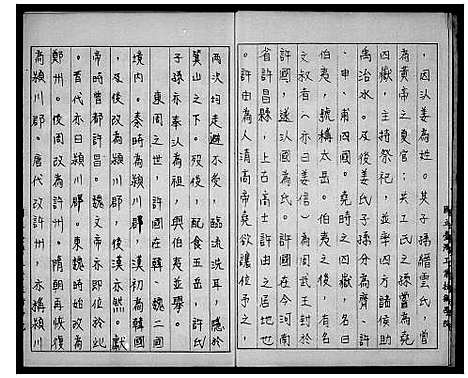 ，因以姜為姓。其子孫縉雲氏，曾
為黃帝之夏官；共工氏之孫曾為堯
四嶽，主持祭祀，並與四方諸侯助
禹治水。及後姜氏子孫分為齊、許
、申、甫四國。堯時之四嶽，名曰
伯夷，號稱太岳。伯夷之後，有名
文叔者（亦曰姜信）為周武王封於
許國，遂以國為氏。許國在今河南
省許昌縣，上古高士許由之居地也
。許由為人清高帝堯欲讓位予之，
兩次均走避不受，臨流洗耳，隱於
箕山之下。歿後，配食五岳，許氏
子孫亦奉以為祖，與伯夷並舉。
東周之世，許國在韓、魏二國
境內。秦時為潁川郡，漢初為韓國
，及後改為潁川郡，後漢亦然。獻
帝時曾都許昌。魏文帝亦即位於此
。晉代亦曰潁川郡。東魏時始改為
鄭州。後周改為許州。隋朝再恢復
為潁川郡。唐代改許州，亦稱潁川